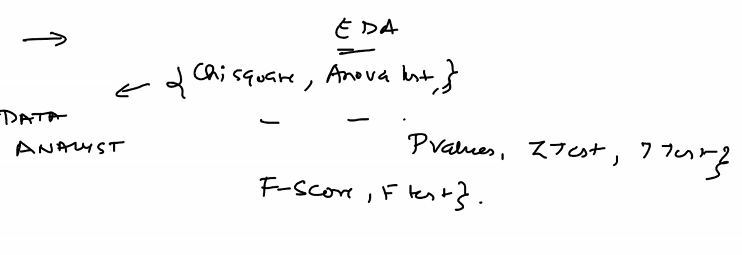 → EDA
← { Chisquare, Anova test, }
DATA
ANALYST
Pvalues, Z Test, T Test }
F-Score, F test }.